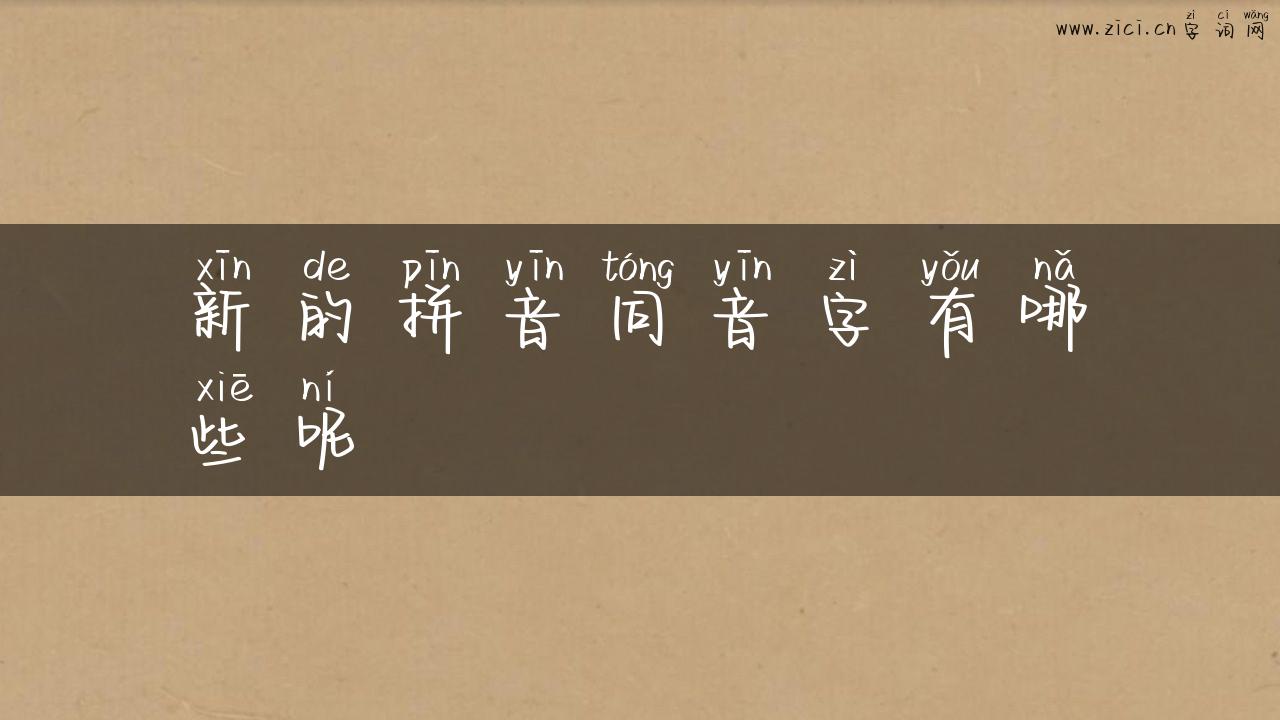 zì cí wǎng
www.zici.cn 字词网
xīn de pīn yīn tóng yīn zì yǒu nǎ
新的拼音同音字有哪
xiē ní
些呢